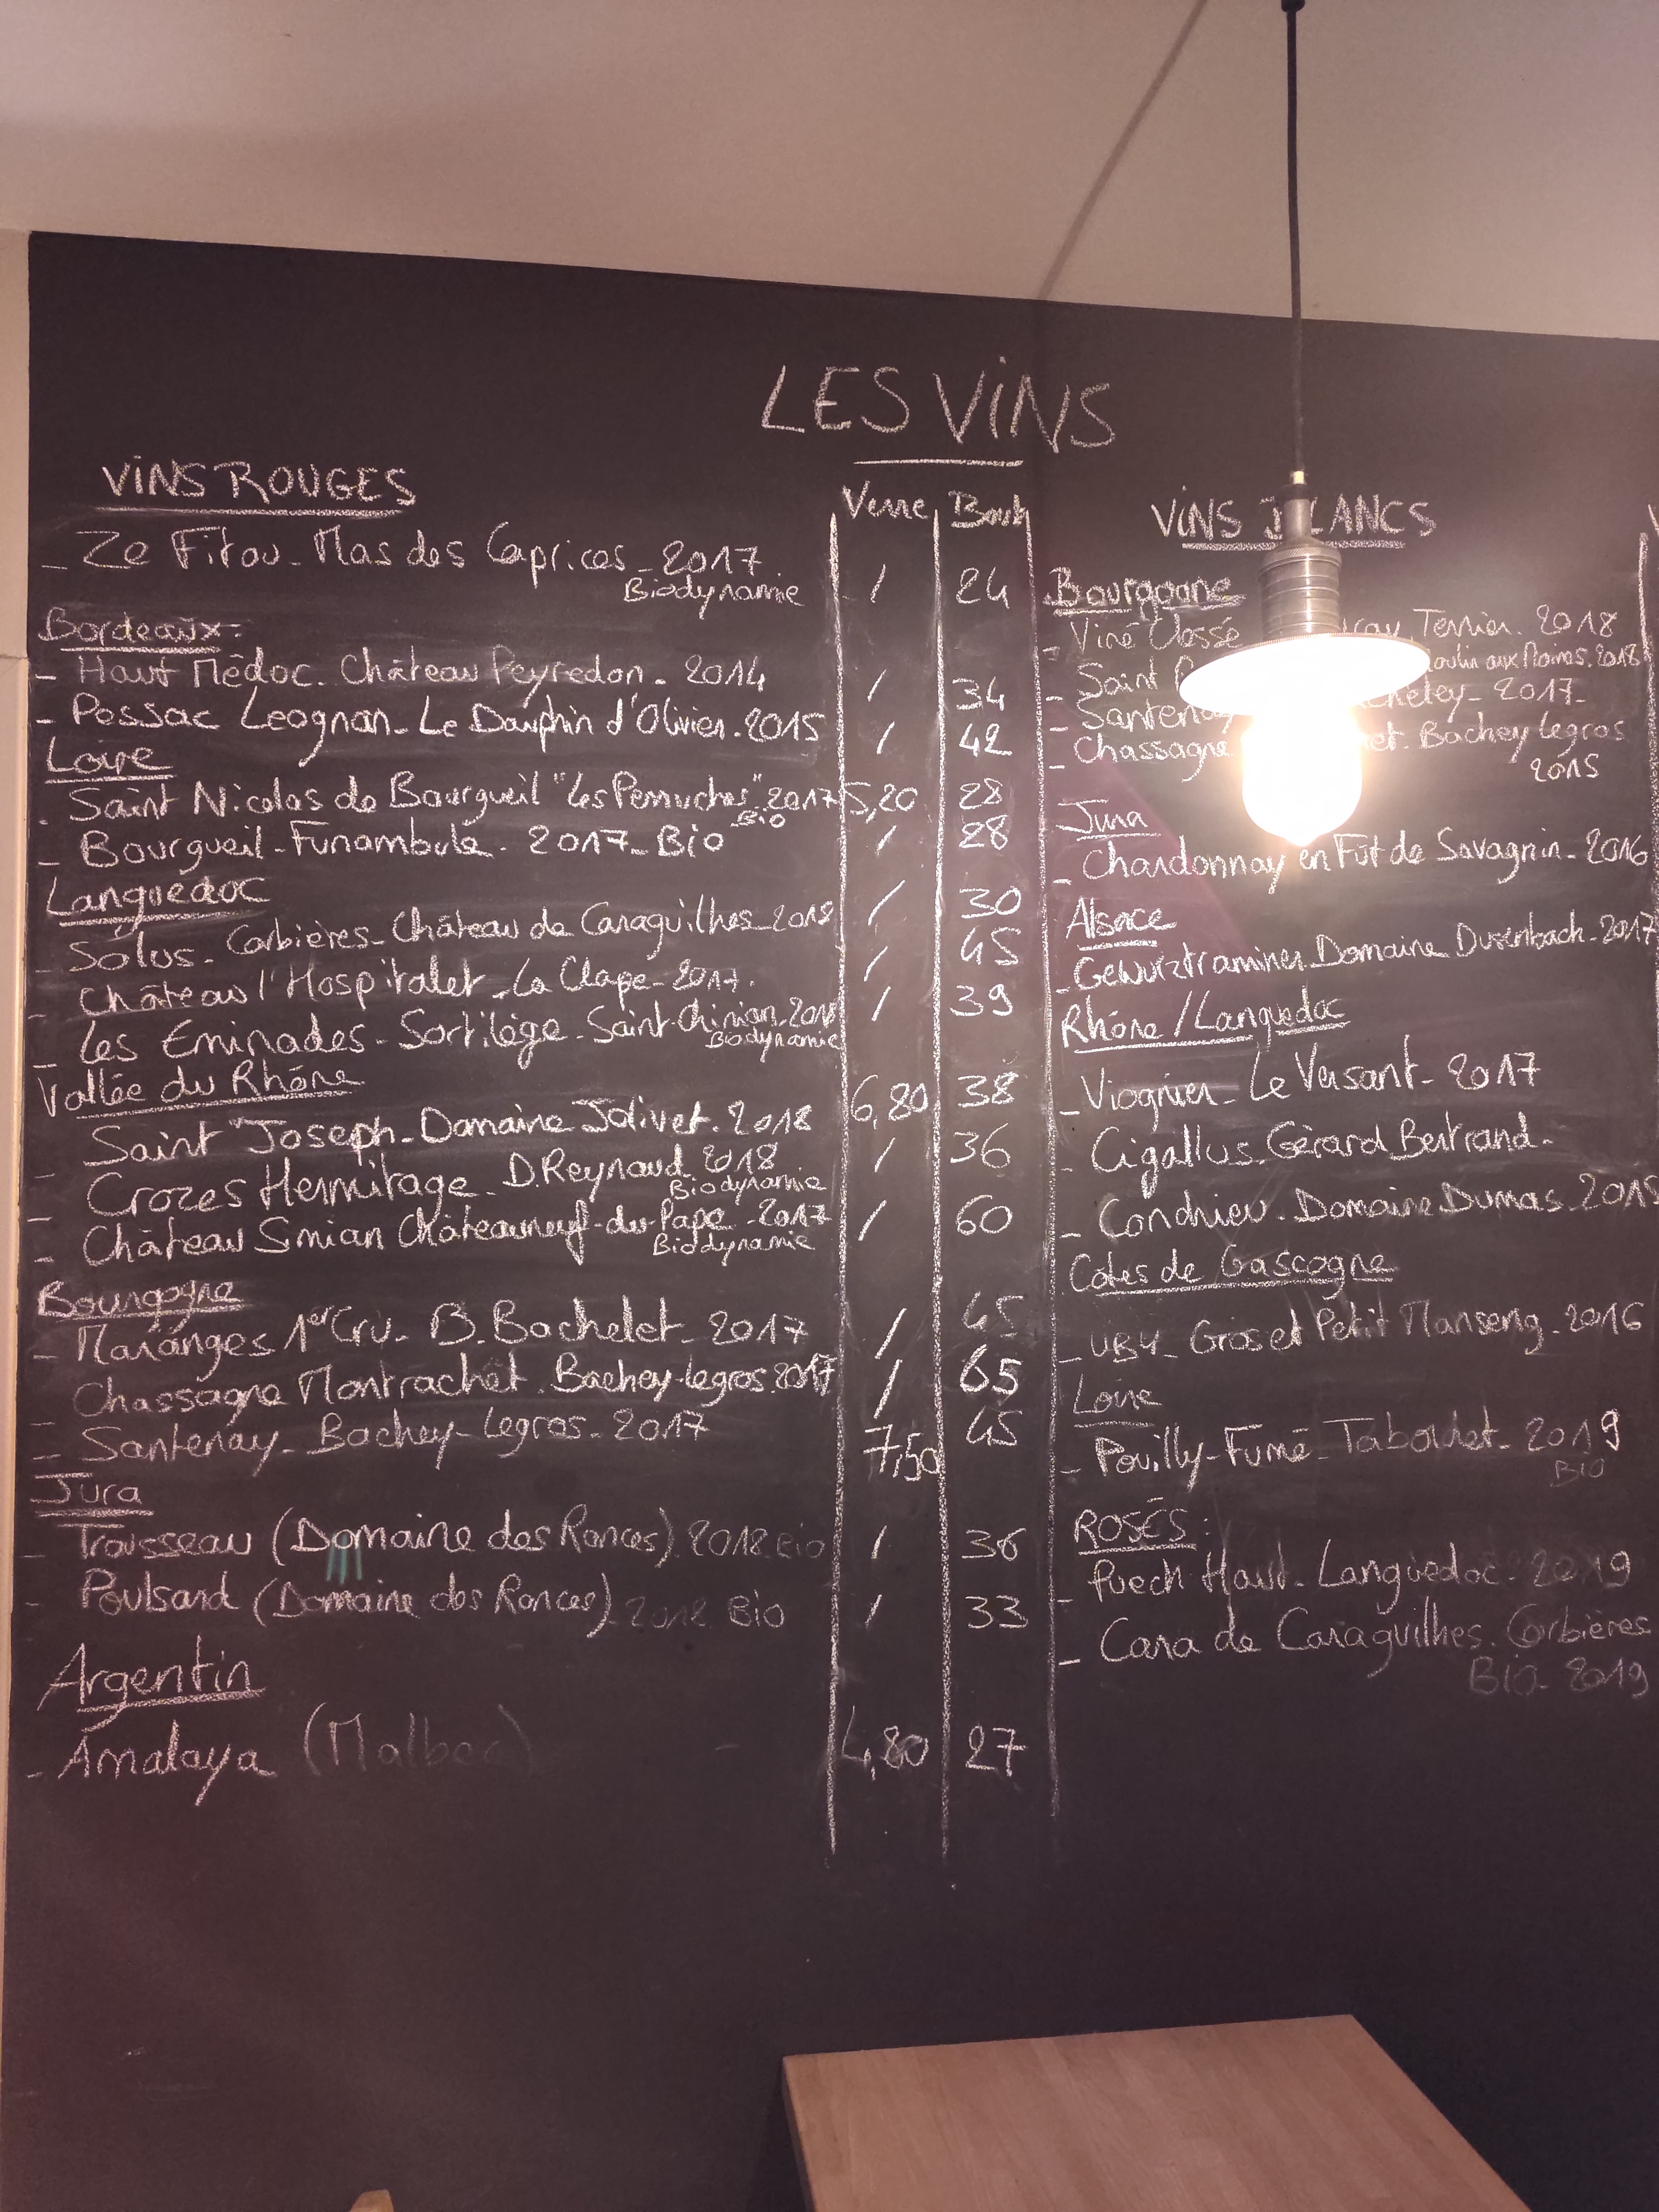 LES VINS
VINS ROUGES
Verre Bout
_ Ze Fitou _ Mas des Caprices _ 2017
Biodynamie / 24
Bordeaux:
_ Haut Mêdoc. Château Peyredon _ 2014 / 34
_ Pessac Leognan _ Le Dauphin d'Olivier. 2015 / 42
Loire
_ Saint Nicolas de Bourgueil "Les Perruches". 2017 5,20 28
Bio
_ Bourgueil _ Funambule. 2017 _ Bio / 28
Languedoc
_ Solus. Corbières _ Château de Caraguilhes _ 2018 / 30
_ Château l'Hospitalet _ La Clape _ 2017. / 45
_ Les Eminades _ Sortilège _ Saint-Chinian. 2018 / 39
Biodynamie
Vallée du Rhône
_ Saint Joseph _ Domaine Jolivet. 2018 6,80 38
_ Crozes Hermitage _ D. Reynaud 2018 / 36
Biodynamie
_ Château Simian Châteauneuf-du-Pape - 2017 / 60
Biodynamie
Bourgogne
_ Maranges 1er Cru _ B. Bachelet _ 2017 / 45
_ Chassagne Montrachet. Bachey-Legros. 2017 / 65
_ Santenay _ Bachey-Legros _ 2017 7,50 45
Jura
_ Trousseau (Domaine des Ronces) 2018 Bio / 36
_ Poulsard (Domaine des Ronces) _ 2018 Bio / 33
Argentin
_ Amalaya (Malbec) 4,80 27
VINS BLANCS
Bourgogne
_ Viré Clessé Terrier. 2018
_ Saint Moulin aux Moines. 2018
_ Santenay 2017 _
_ Chassagne Bachey Legros
2015
Jura
_ Chardonnay en Fût de Savagnin _ 2016
Alsace
_ Gewurztraminer. Domaine Dusenbach _ 2017
Rhône / Languedoc
_ Viognier _ Le Versant _ 2017
_ Cigallus. Gérard Bertrand _
_ Condrieu. Domaine Dumas
Côtes de Gascogne
_ UBY _ Gros et Petit Manseng _ 2016
Loire
_ Pouilly-Fumé _ Tabordet _ 2019
Bio
ROSÉS:
_ Puech-Haut _ Languedoc _ 2019
_ Cara de Caraguilhes. Corbières
Bio _ 2019